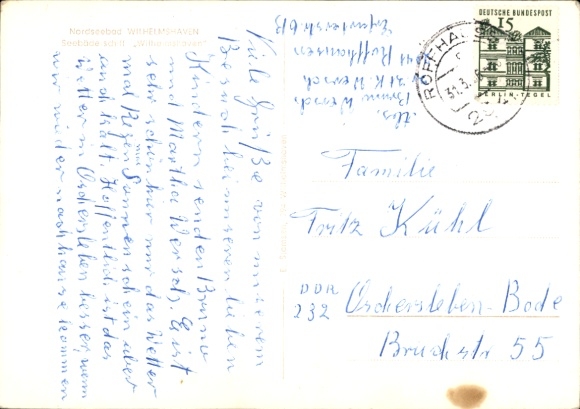 Nordseebad WILHELMSHAVEN
Viele Grüße von unserem
Besuch bei unseren lieben
Kindern senden Bruno
und Martha Wersch. Es ist
sehr schön hier nur das Wetter
mal Regen mal Sonnenschein aber
auch kalt. Hoffentlich ist das
Wetter in Oschersleben besser, wenn
wir wieder nach hause kommen
Abs. Bruno Wersch,
b. K. Wersch
Roffhausen
DEUTSCHE BUNDESPOST
15
BERLIN-TEGEL
ROFFHAUSEN
Familie
Fritz Kühl
DDR
232 Oschersleben-Bode
Bruchstr 55